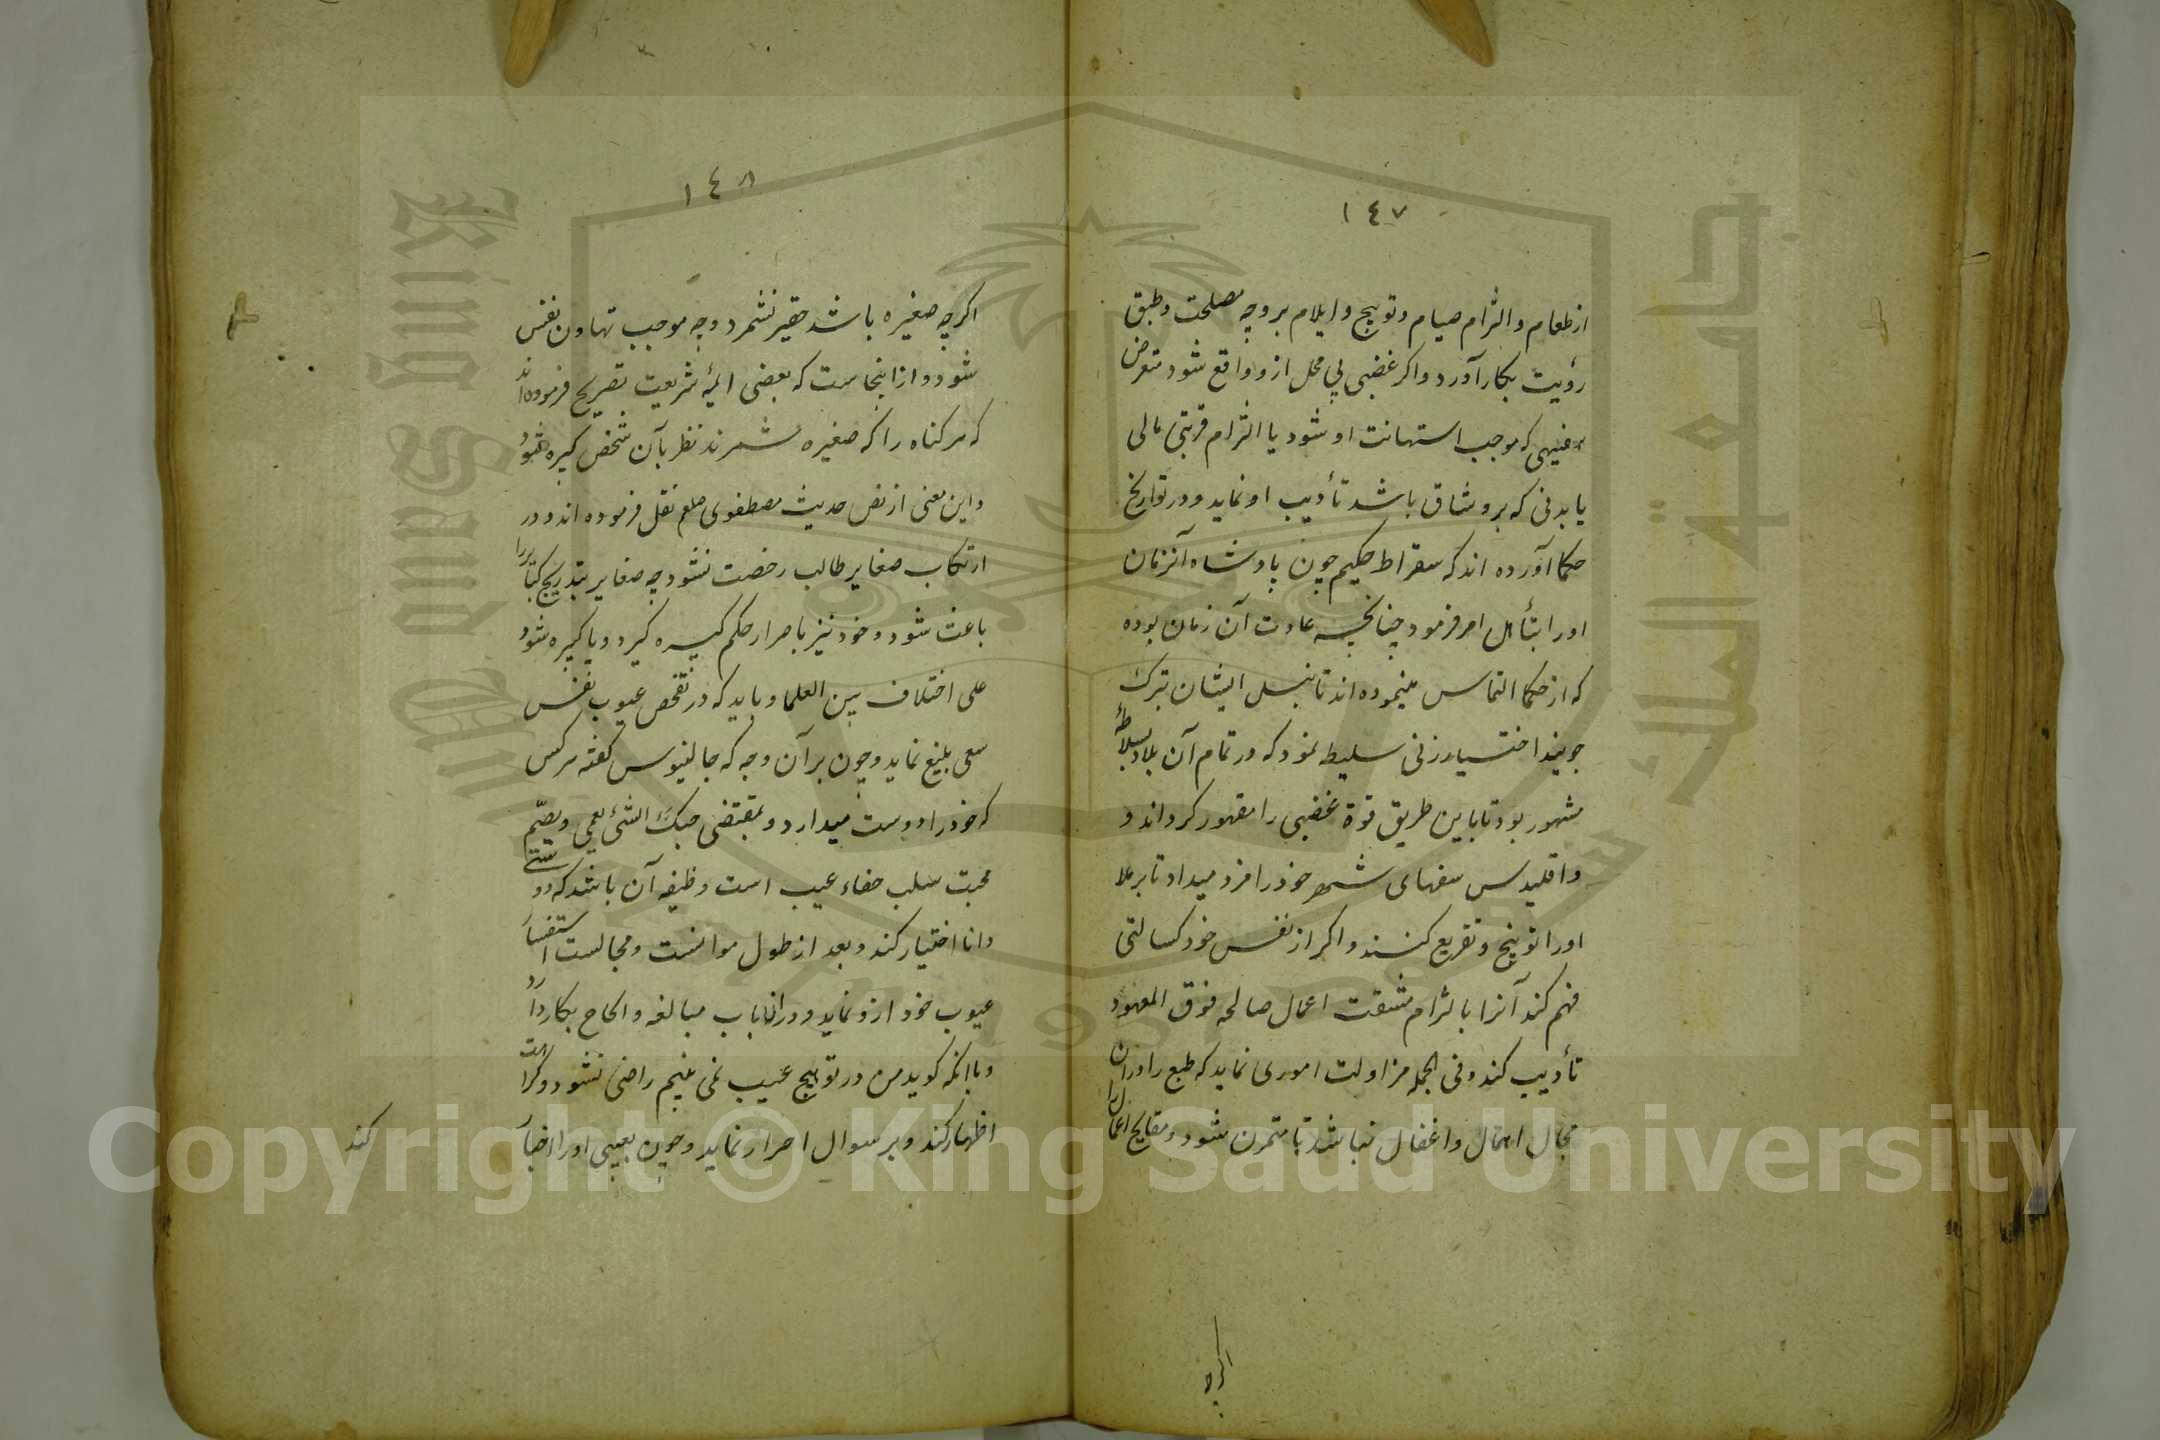 ١٤٧
از طعام والتزام صیام وتوبیخ وایلام بر وجه مصلحت وطبق
رؤیت بکار آورد واکر غضبی بی محل ازو واقع شود متعرض
سفیهی که موجب استهانت او شود یا التزام قربتی مالی
یا بدنی که برو شاق باشد تأدیب او نماید ودر تواریخ
حکما آورده اند که سقراط حکیم چون پادشاه آنزمان
اورا بتأهل امر فرمود چنانچه عادت آن زمان بوده
که از حکما التماس مینموده اند تا بنسل ایشان تبرک
جویند اختیار زنی سلیطه نمود که در تمام آن بلاد بسلاطه
مشهور بود تا باین طریق قوة غضبی را مقهور کرداند و
واقلیدس سفهای شهر خودرا مزد میداد تا برملا
اورا توبیخ وتقریع کنند واکر از نفس خود کسالتی
فهم کند آنرا بالتزام مشقت اعمال صالحه فوق المعهود
تأدیب کند وفی الجمله مزاولت اموری نماید که طبع را دران
مجال اهمال واغفال نباشد تا متمرن شود وقبایح اعمال را
اکرچه
١٤٨
اکرچه صغیره باشد حقیر نشمرد وجه موجب تهاون نفس
شود وازاینجاست که بعضی ایمهٔ شریعت تصریح فرموده اند
که هر کناه را که صغیره شمرند نظر بآن شخص کبیره شود
واین معنی از نص حدیث مصطفوی صلعم نقل فرموده اند ودر
ارتکاب صغایر طالب رخصت نشود چه صغایر بتدریج کبایر را
باعث شود وخود نیز باصرار حکم کبیره کیرد ویا کبیره شود
علی اختلاف بین العلما وباید که در تفحص عیوب نفس
سعی بلیغ نماید وچون بر آن وجه که جالینوس کفته هرکس
که خودرا دوست میدارد وبمقتضی حبک الشئ یعمی ویصم
محبت سلب خفاء عیب است وظیفه آن باشد که دوستی
دانا اختیار کند وبعد از طول موانست ومجالست استفسار
عیوب خود ازو نماید ودران باب مبالغه والحاح بکار دارد
وباانکه کوید من در تو هیچ عیب نمی بینم راضی نشود وکراهت
اظهار کند وبر سوال اصرار نماید وچون بعیبی اورا اخبار
کند
Copyright © King Saud University
King Saud University
1957